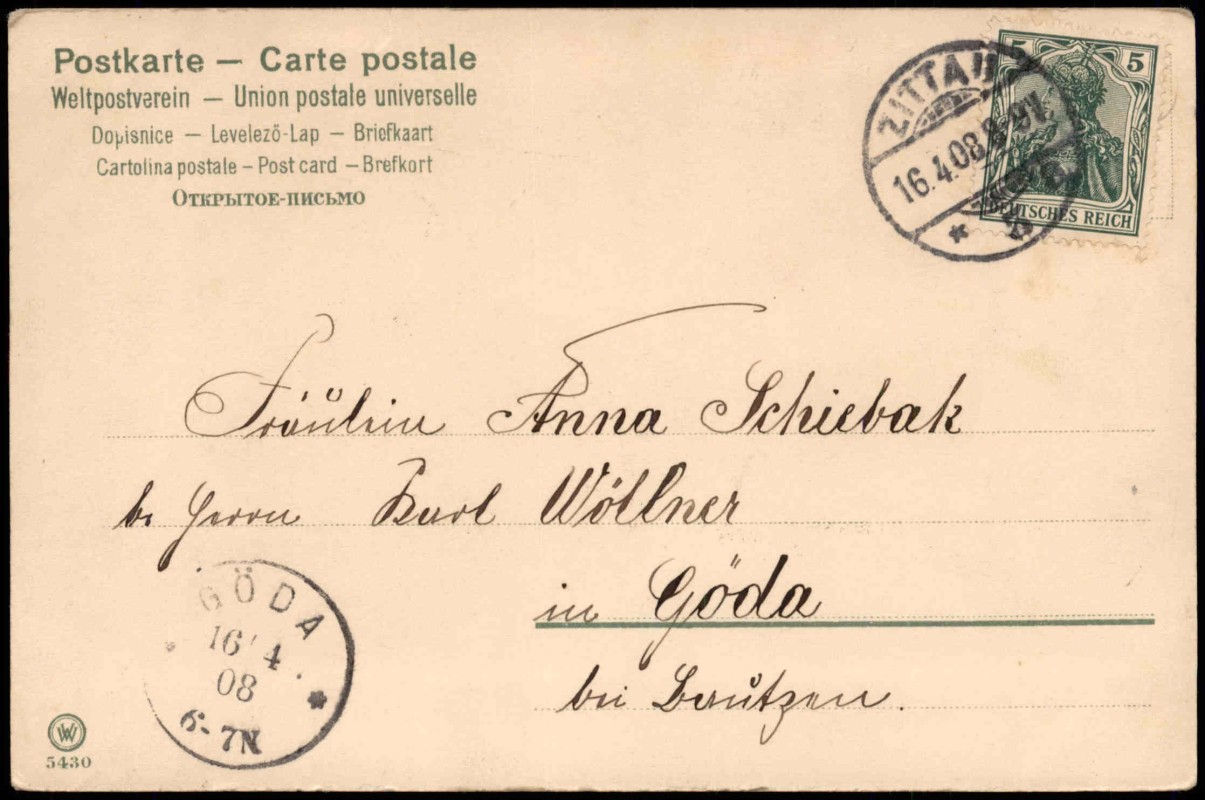 Postkarte — Carte postale
Weltpostverein — Union postale universelle
Dopisnice — Levelező-Lap — Briefkaart
Cartolina postale — Post card — Brefkort
Открытое-письмо
ZITTAU
16.4.08.8-9V.
5 5
DEUTSCHES REICH
Fräulein Anna Schiebak
b. Herrn Karl Wöllner
in Göda
bei Bautzen.
GÖDA
16 4
08
6-7N
W
5430